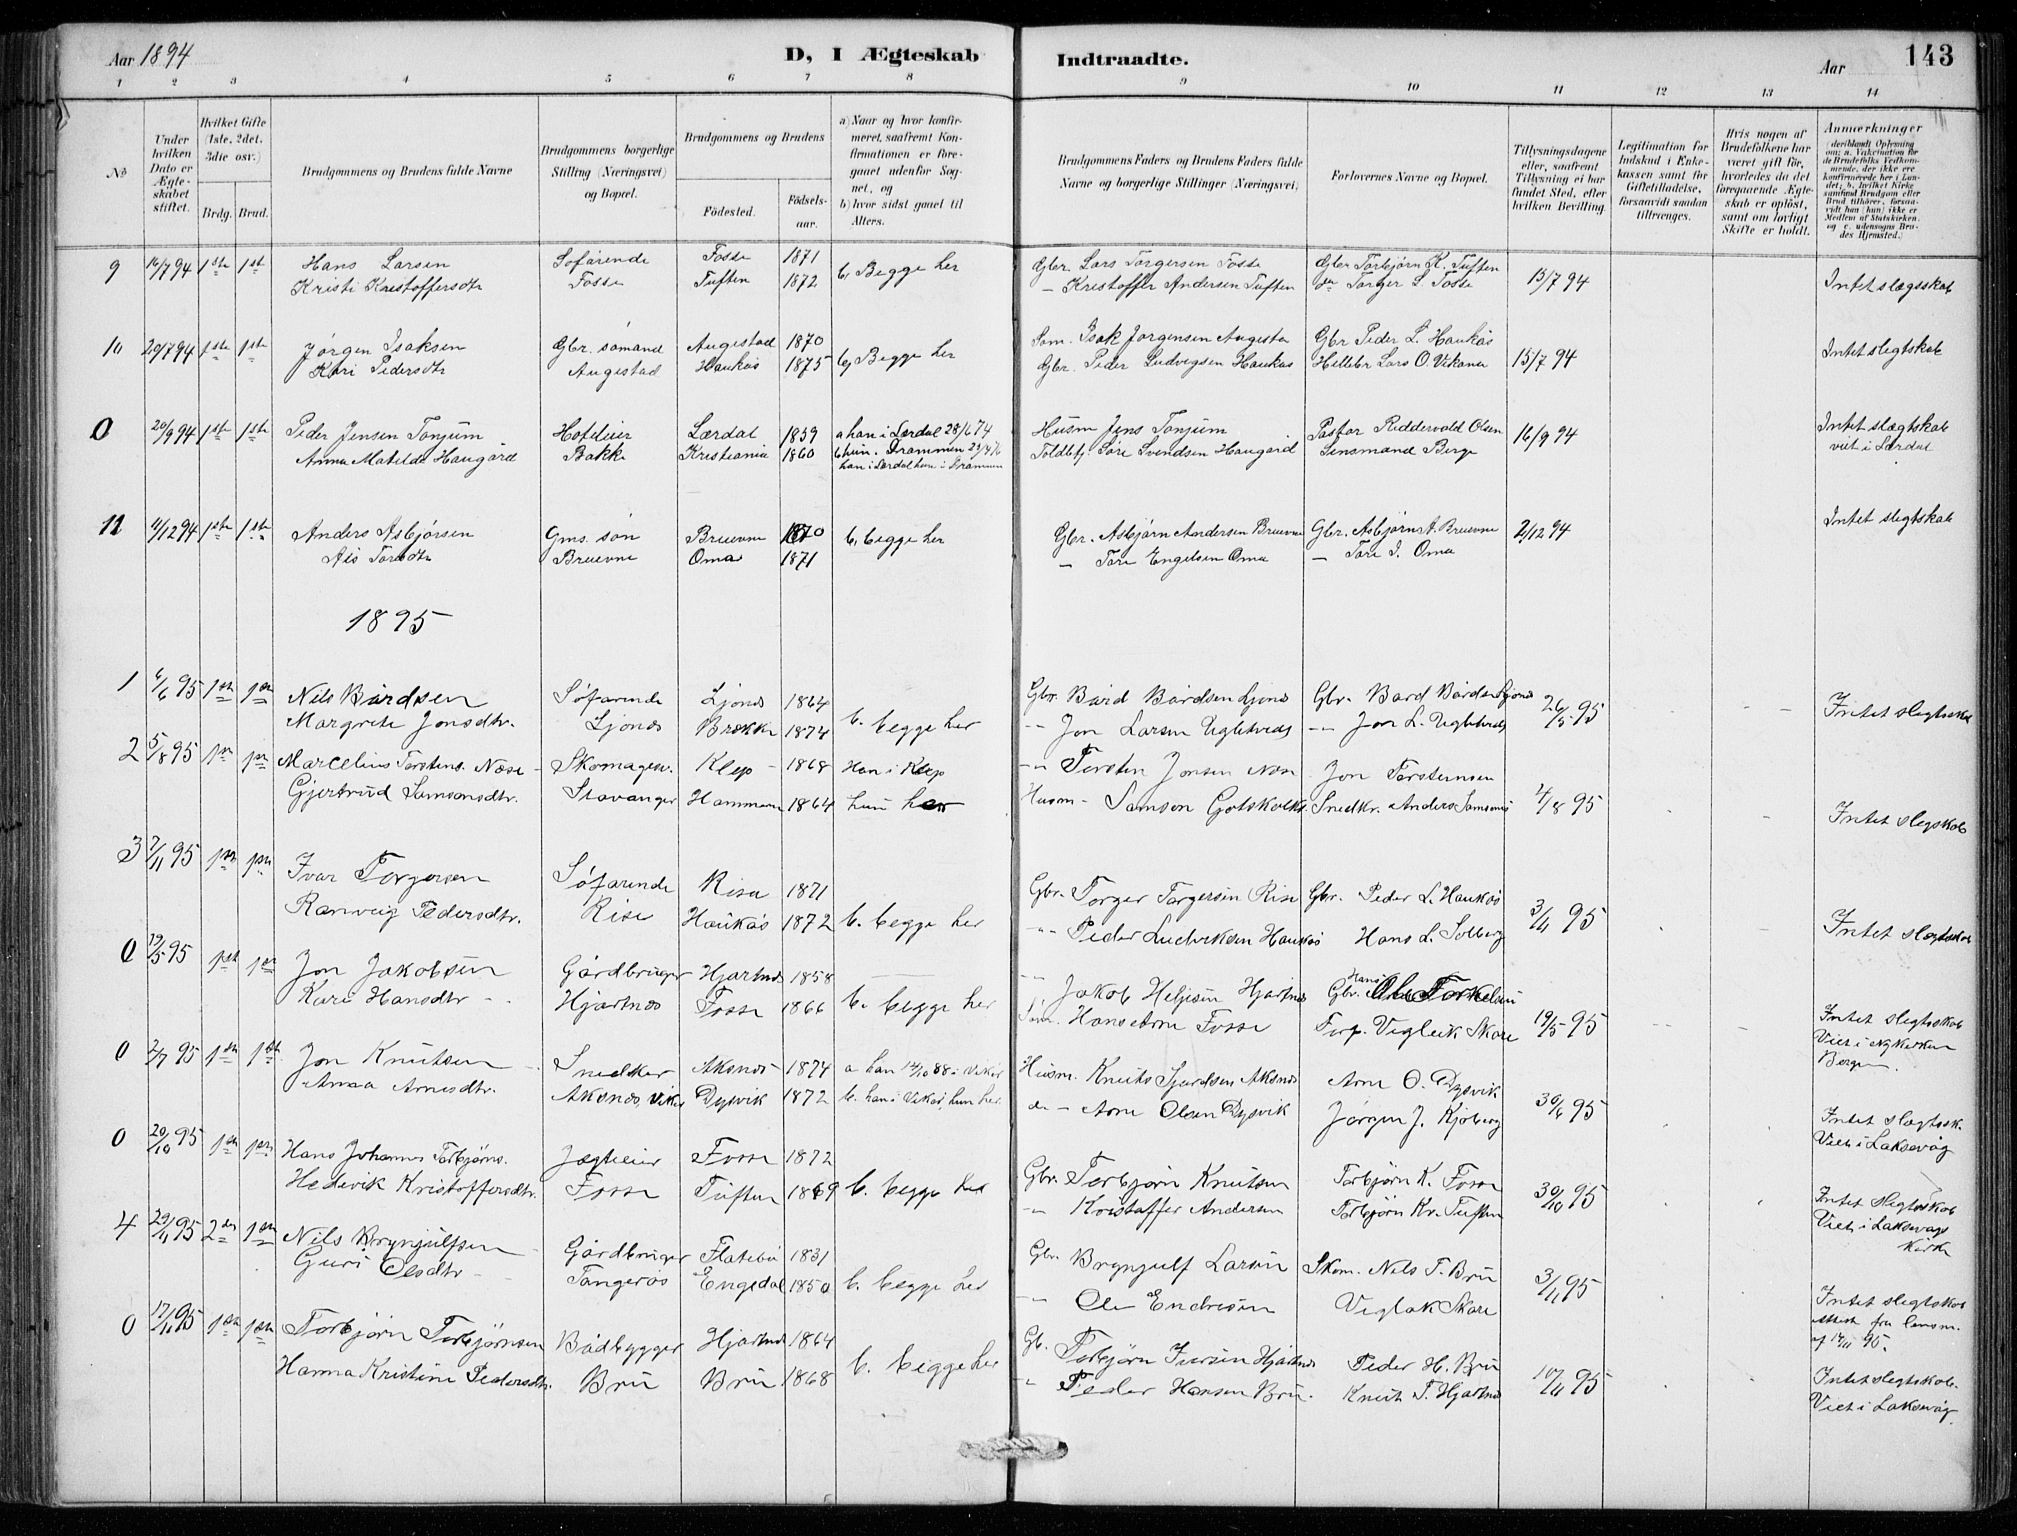 Aar 1894
D, I Ægteskab Indtraadte.
Aar
143
1 2 3 4 5 6 7 8 9 10 11 12 13 14
No
Under hvilken Dato er Ægteskabet stiftet.
Hvilket Gifte (1ste, 2det, 3die osv.)
Brdg. Brud.
Brudgommens og Brudens fulde Navne
Brudgommens borgerlige Stilling (Næringsvei) og Bopæl.
Brudgommens og Brudens
Fødested. Fødselsaar.
a) Naar og hvor konfirmeret, saafremt Konfirmationen er foregaaet udenfor Sognet, og
b) hvor sidst gaaet til Alters.
Brudgommens Faders og Brudens Faders fulde Navne og borgerlige Stillinger (Næringsvei)
Forlovernes Navne og Bopæl.
Tillysningsdagene eller, saafremt Tillysning ei har fundet Sted, efter hvilken Bevilling.
Legitimation for Indskud i Enkekassen samt for Giftetilladelse, forsaavidt saadan tiltrænges.
Hvis nogen af Brudefolkene har været gift før, hvorledes da det foregaaende Ægteskab er opløst, samt om lovligt Skifte er holdt.
Anmærkninger (deriblandt Oplysning om: a. Vakcination for de Brudefolks Vedkommende, der ikke ere konfirmerede her i Landet; b. hvilket Kirkesamfund Brudgom eller Brud tilhører, forsaavidt han (hun) ikke er Medlem af Statskirken, og c. udensogns Brudes Hjemsted.)
9 16/7 94 1ste 1ste Hans Larsen Søfarende Fosse 1871 b, Begge her Gbr. Lars Torgersen Fosse Gbr Torbjørn K. Tuften 15/7 94 Intet slægsskab
Kristi Kristoffersdtr Fosse Tuften 1872 – Kristoffer Andersen Tuften do Torger L Fosse
10 20/7 94 1ste 1ste Jørgen Isaksen Gbr. sømand Augestad 1870 b, Begge her Søm. Isak Jørgensen Augestad Gbr Peder L. Haukås 15/7 94 Intet slegtskab
Kari Pedersdtr Augestad Haukås 1875 Gbr. Peder Ludvigsen Haukås Lars O. Vikane
0 20/9 94 1ste 1ste Peder Jensen Tonjum Hoteleier Lærdal 1839 a han i Lærdal 28/6 74 Husm Jens Tonjum Pastor Riddervold Olsen 16/9 94 Intet slægtskab
Anna Matilde Haugård Bakke Kristiania 1860 hun i Drammen Toldbtj. Svendsen Haugård Lensmand Berge viet i Lærdal
han i Lærdal hun i Drammen
11 11/12 94 1ste 1ste Anders Asbjørsen Gms. søn Bruevne 1870 b, begge her Gbr. Asbjørn Andersen Bruevne Gbr. Asbjørn A. Bruevne 2/12 94 Intet slegtskab
Ais Toresdtr Bruevne Oma 1871 – Tore Engelsen Oma – Tore I. Oma
1895
1 6/6 95 1ste 1ste Nils Bårdsen Søfarende Ljonås 1864 b. begge her Gbr. Bård Bårdsen Ljonås Gbr. Bård Bårdsen Ljonås 26/5 95 Intet slegtsska
Margrete Jonsdtr. Ljonås Brekke 1874 -- Jon Larsen -- Jon L.
2 5/8 95 Marcelius Torstens. Næse Skomager. Klep 1868 Han i Klep -- Torsten Jonsen Næse Jon Torstensen
Gjertrud Samsonsdtr. Stavanger Hammen 1864 hun her Husm – Samson Gotskalks. Snedkr. Anders Samsons 4/8 95 Intet slegskab
3 7/11 95 Ivar Torgersen Søfarende Risa 1871 b. begge her Gbr. Torger Torgersen Rise Gbr. Peder L. Haukås 3/11 95 Intet slegtskab
Ranveig Pedersdtr. Rise Haukås 1872 -- Peder Ludviksen Haukås Hans L. Solberg
0 19/5 95 Jon Jakobsen Gårdbruger Hjartnås 1858 -- Jakob Helgisen Hjartnås Gbr. Hans Torkelsen
Kari Hansdtr Hjartnås Fosse 1866 b. begge her Hans Arne Fosse Torp. Vigleik Skare 19/5 95 Intet slegtsskab
Viet i Nykirken Bergen.
0 2/7 95 1ste 1ste Jon Knutsen Snedker Aksnås 1874 a han 88 i Vikør Husm. Knut Sjurdsen Aksnås Arne O. Dysvik 30/6 95
Anna Arnesdtr. Aksnås, Vikør Dysvik 1872 b. han i Vikør, hun her do – Arne Olsen Dysvik Jørgen J. Kjøberg Intet slegtssk.
Viet i Laksevåg
0 20/10 95 Hans Johannes Torbjørns. Jægteeier Fosse 1872 Gbr. Torbjørn Knutsen Torbjørn K. Fosse
Hedevik Kristoffersdtr. Fosse Tuften 1869 b. begge her -- Kristoffer Andersen Torbjørn Kr. Tuften 30/10 95 Intet slegtskab
Viet i Laksevågs Kirke
4 29/11 95 2den 1ste Nils Brynjulfsen Gårdbruger Flatebø 1831 Gbr. Brynjulf Larsen Skom. Nils T. Bru 3/11 95
Guri Olsdtr Tangerås Engedal 1850 b. begge her -- Ole Endresen Vigleik Skare Intet slegtskab
Attest fra lensm. af 14/11 95.
0 17/11 95 Torbjørn Torbjørnsen Bådbygger Hjartnås 1864 b. begge her Gb. Torbjørn Iversen Hjartnås Peder H. Bru 10/11 95
Hanna Kristine Pedersdtr. Bru Bru 1868 -- Peder Hansen Bru. Knut T. Hjartnås Intet slegtskab.
Viet i Laksevåg